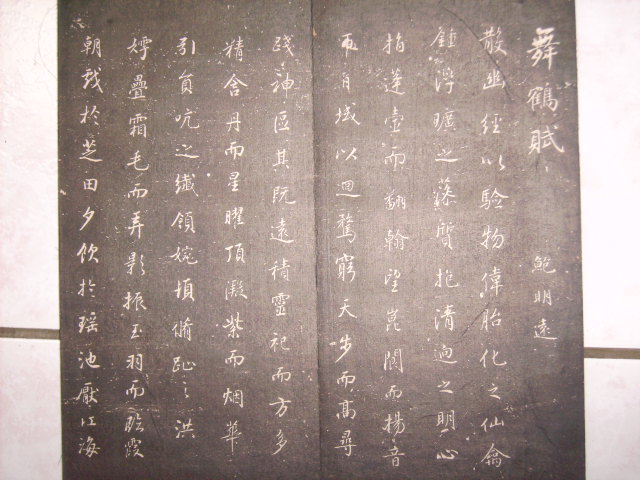 舞鶴賦
鮑明遠
散幽經以驗物偉胎化之仙禽
鍾浮曠之藻質抱清迥之明心
指蓬壺而翻翰望崑閬而揚音
帀日域以迴騖窮天步而高尋
踐神區其既遠積靈祀而方多
精含丹而星曜頂凝紫而烟華
引員吭之纖領婉頓脩趾之洪
姱疊霜毛而弄影振玉羽而臨霞
朝戲於芝田夕飲於瑤池厭江海